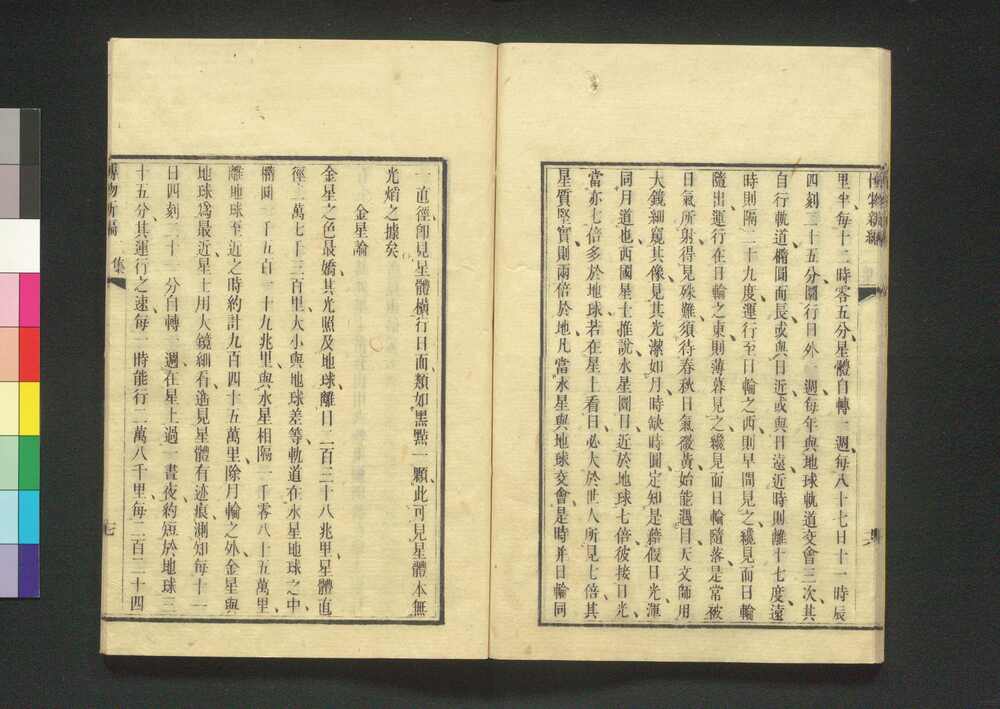 里半每十二時零五分星體自轉一週每八十七日十一時辰
四刻三十五分圜行日外一週每年與地球軌道交會三次其
自行軌道橢圓而長或與日近或與日遠近時則離十七度遠
時則隔二十九度運行至日輪之西則早間見之纔見而日輪
隨出運行在日輪之東則薄暮見之纔見而日輪隨落是常被
日氣所射得見殊難須待春秋日氣微黃始能遇目天文師用
大鏡細窺其像見其光潔如月時缺時圓定知是藉假日光渾
同月道也西國星士推說水星圜日近於地球七倍彼接日光
當亦七倍多於地球若在星上看日必大於世人所見七倍其
星質堅實則兩倍於地凡當水星與地球交會是時并日輪同
一直徑卽見星體橫行日面類如黑點一顆此可見星體本無
光熖之據矣
金星論
金星之色最嬌其光照及地球離日二百三十八兆里星體直
徑二萬七千三百里大小與地球差等軌道在水星地球之中
橢圓一千五百一十九兆里與水星相隔一千零八十五萬里
離地球至近之時約計九百四十五萬里除月輪之外金星與
地球爲最近星士用大鏡細看遙見星體有迹痕測知每十一
日四刻二十一分自轉一週在星上過一晝夜約短於地球三
十五分其運行之速每一時能行二萬八千里每二百二十四
博物新編 二集 七